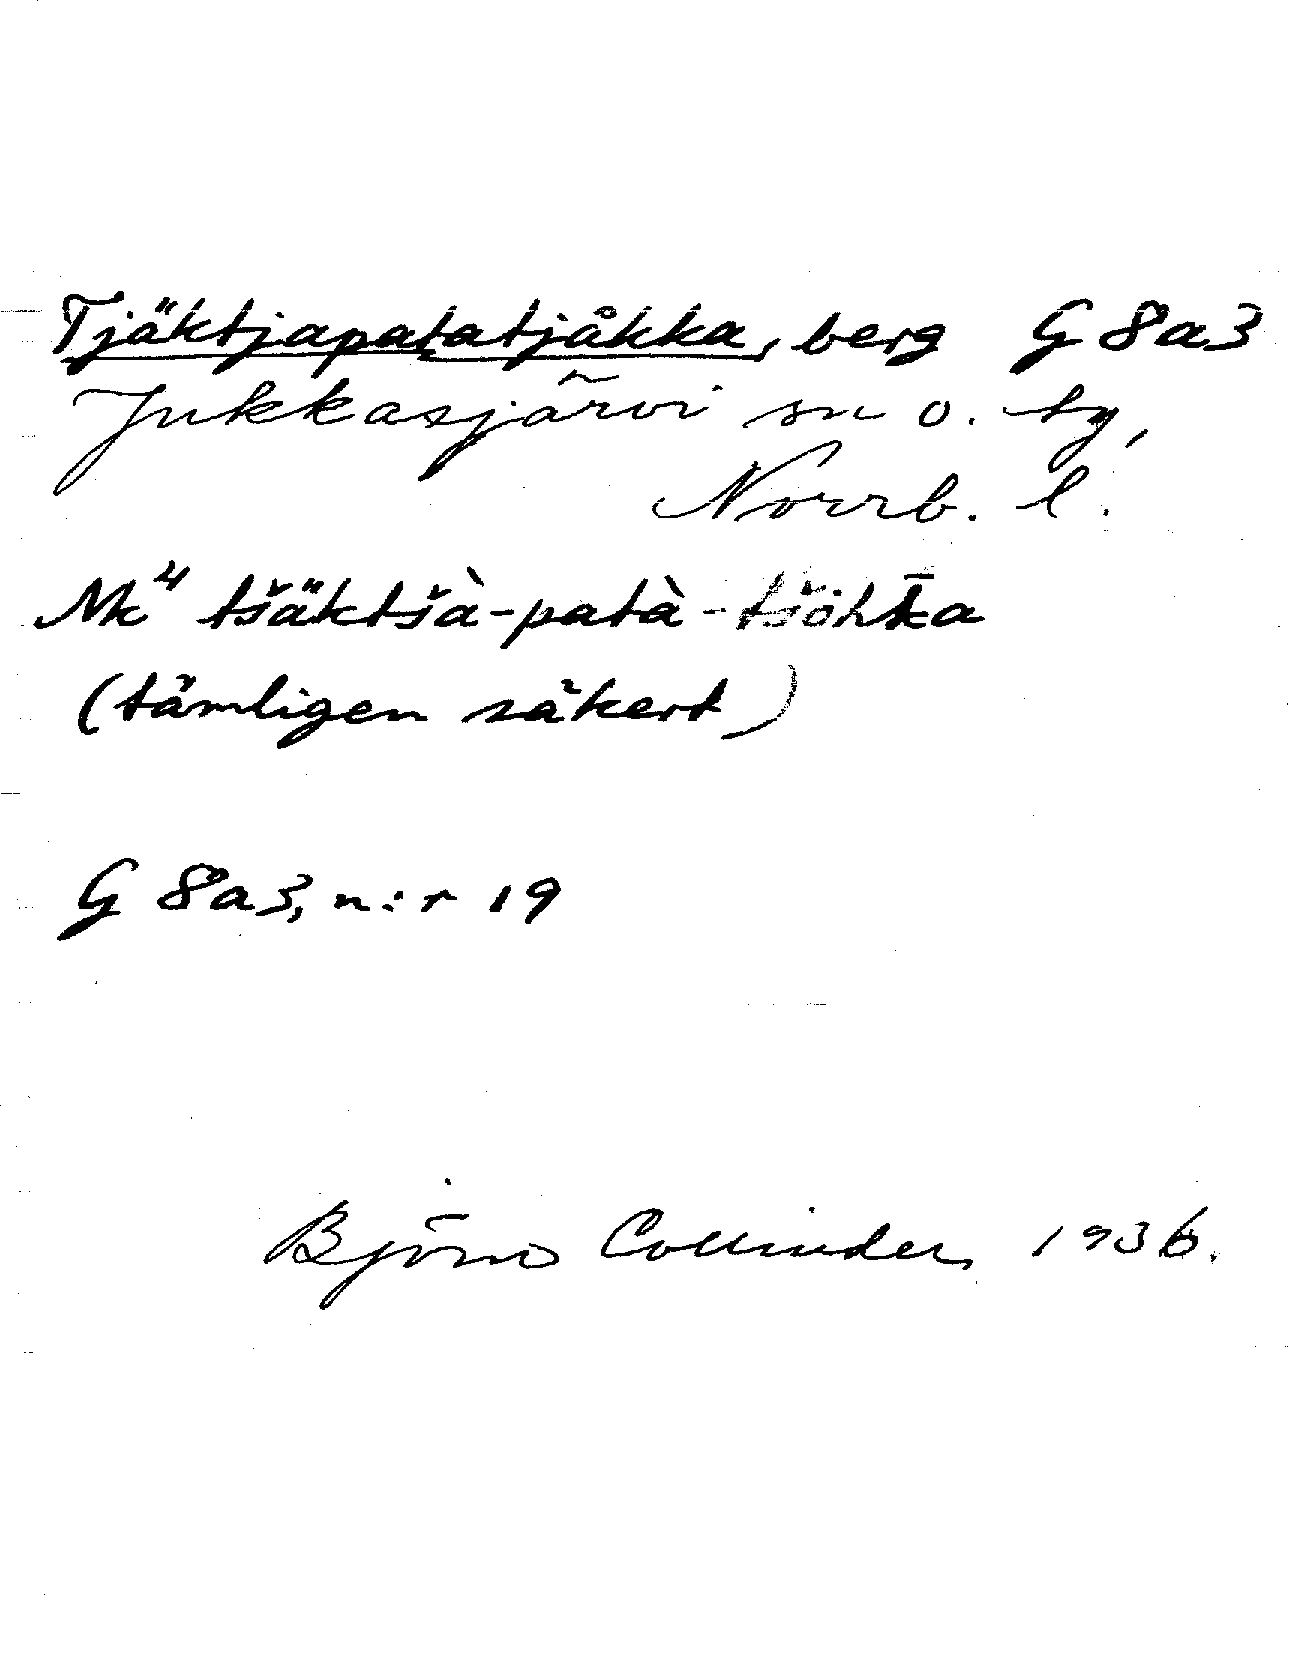 Tjäktjapatatjåkka, berg G 8a3
Jukkasjärvi sn o. tg,
Norrb. l.
Mk⁴ tšäktšà-patà-tšöhk̄a
(tämligen säkert)
G 8a3, n:r 19
Björn Collinder 1936.